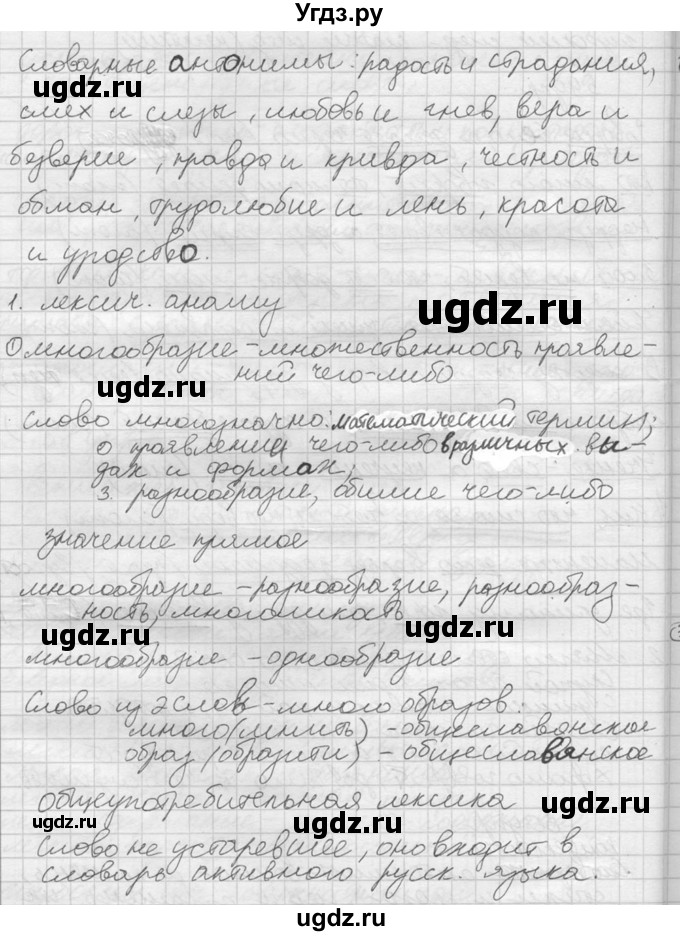 Угдз.ру
Словарные антонимы: радость и страдания,
смех и слезы, любовь и гнев, вера и
безверие, правда и кривда, честность и
обман, трудолюбие и лень, красота
и уродство.
1. лексич. анализ
ugdz.ru
① многообразие - множественность проявле-
ний чего-либо
ugdz.ru
ugdz.ru
Слово многозначно: математический термин;
о проявлении чего-либо в различных ви-
дах и формах;
3. разнообразие, обилие чего-либо
значение прямое
многообразие - разнообразие, разнообраз-
ность, многоликость
ugdz.ru
ugdz.ru
многообразие - однообразие
Слово из 2 слов - много образов:
много (мнить) - общеславянское
образ (образити) - общеславянское
общеупотребительная лексика
ugdz.ru
ugdz.ru
ugdz.ru
Слово не устаревшее, оно входит в
словарь активного русск. языка.
ugdz.ru